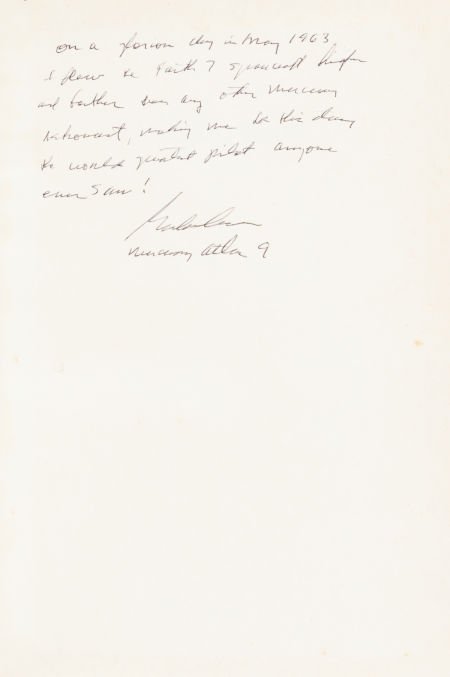 on a glorious day in May 1963
I flew the Faith 7 spacecraft higher
and farther than any other Mercury
Astronaut, making me to this day
the worlds greatest pilot anyone
ever saw!
Mercury Atlas 9